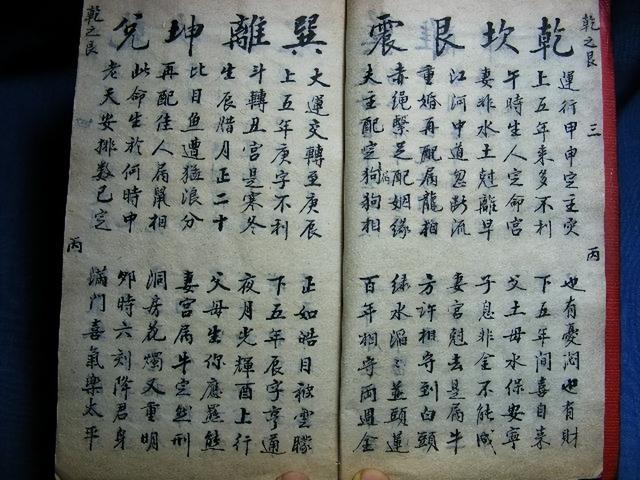 乾之艮
三
丙
乾坎艮震
運行甲申定主灾 也有憂悶也有財
上五年来多不利 下五年間喜自来
午時生人定命宮 父土母水保安寧
妻非水土尅離早 子息非金不能成
江河中道忽断流 妻宮尅去是属牛
重婚再配属龍相 方許相守到白頭
赤绳繫足配姻缘 绿水滔〻並頭蓮
夫主配定狗狗相 百年相守両週金
巽離坤兌
大運交轉至庚辰 正如皓月被雲朦
上五年庚字不利 下五年辰字亨通
斗轉丑宮是寒冬 夜月光輝酉上行
生辰腊月正二十 父母生你應熊
比目鱼遭猛浪分 妻宮属牛定然刑
再配佳人属鼠相 洞房花燭又重明
此命生於何時中 夘時六刻降君身
老天安排数已定 满門喜氣樂太平
乾之艮
丙